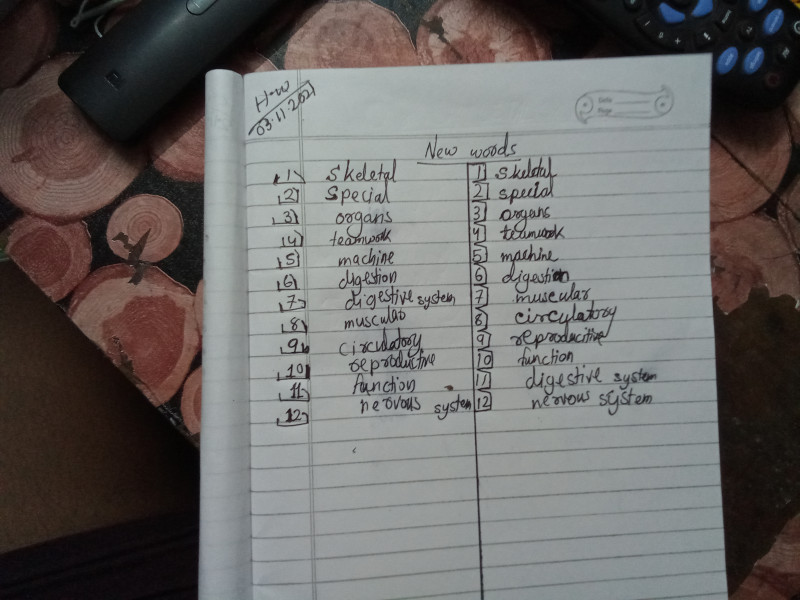 H.w
03.11.2021
Date
Page
New words
1 Skeletal 1 Skeletal
2 Special 2 special
3 organs 3 organs
4 teamwork 4 teamwork
5 machine 5 machine
6 digestion 6 digestion
7 digestive system 7 muscular
8 muscular 8 circulatory
9 circulatory 9 reproductive
10 reproductive 10 function
11 function 11 digestive system
12 nervous system 12 nervous system